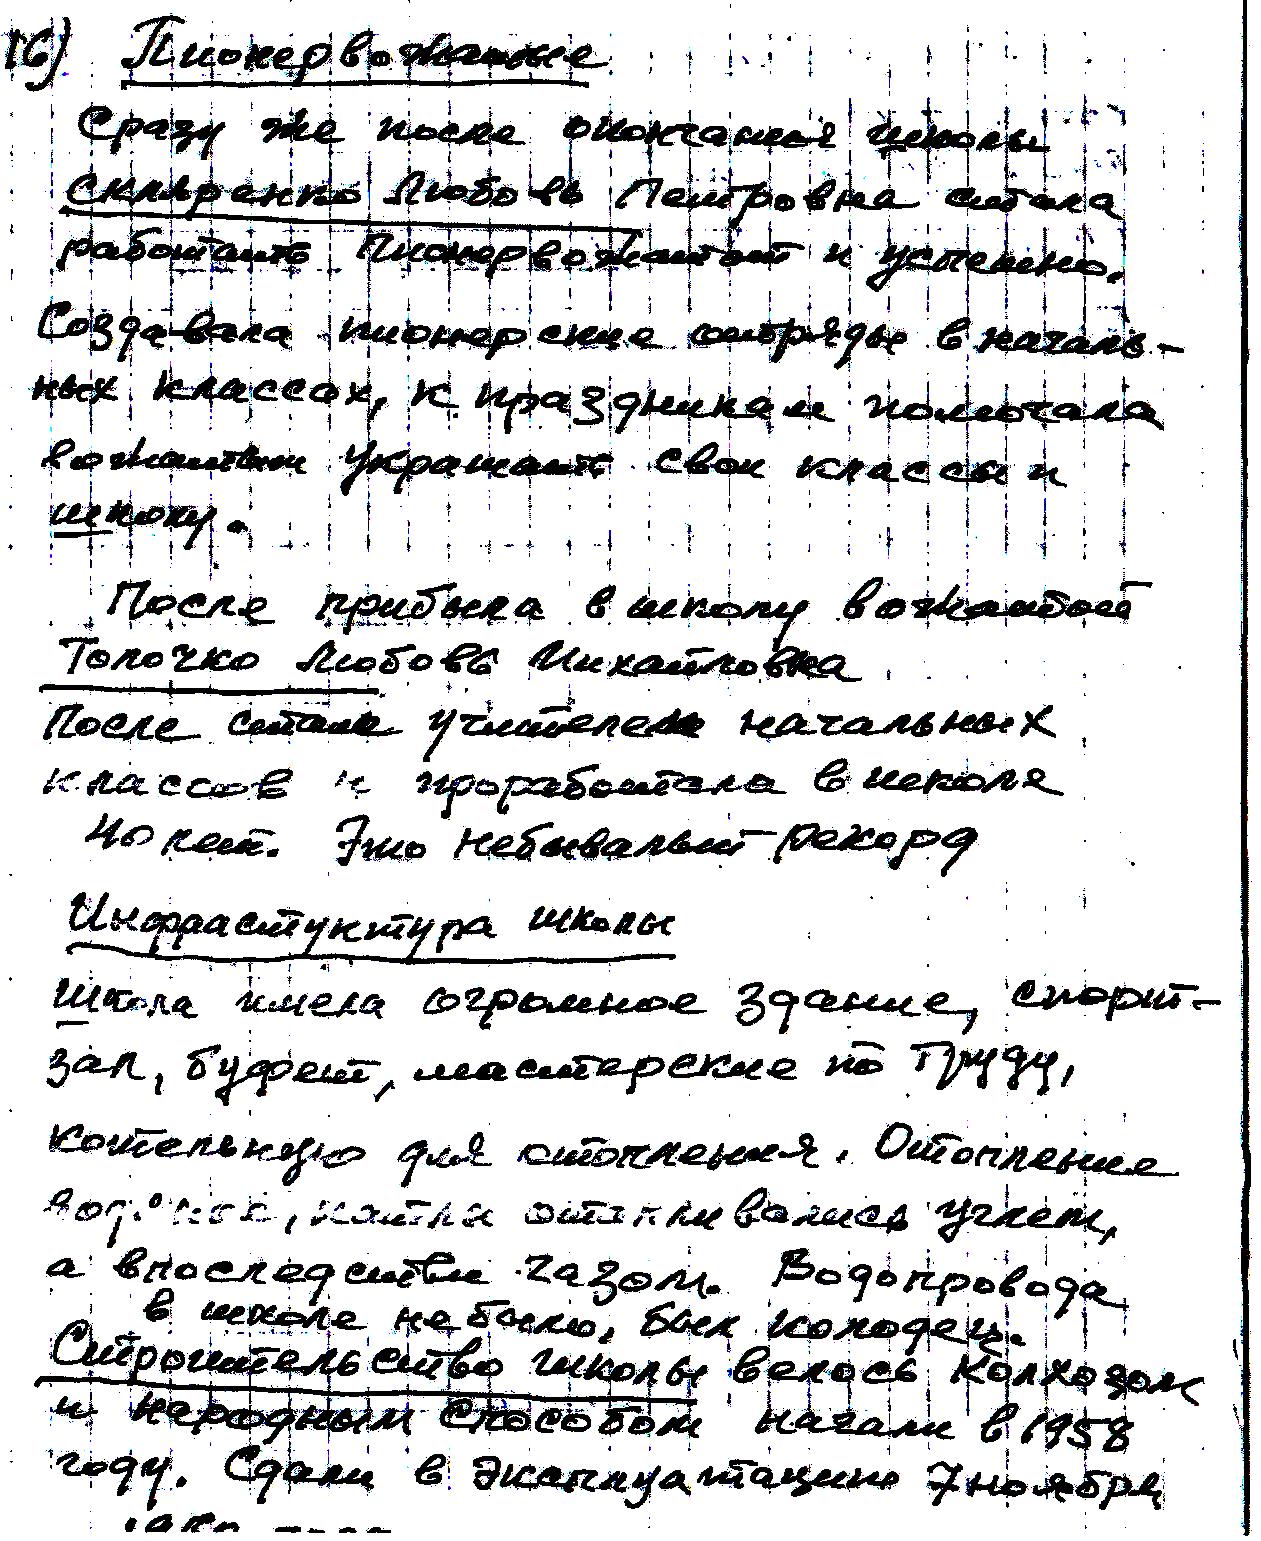 16) Пионервожатые
Сразу же после окончания школы
Скляренко Любовь Петровна стала
работать пионервожатой и успешно.
Создавала пионерские отряды в началь-
ных классах, к праздникам помогала
вожатым украшать свои классы и
школу.
После прибыла в школу вожатой
Толочко Любовь Михайловна
После стала учителем начальных
классов и проработала в школе
40 лет. Это небывалый рекорд
Инфраструктура школы
Школа имела огромное здание, спорт-
зал, буфет, мастерские по труду,
котельную для отопления. Отопление
котлы отапливались углем,
а впоследствии газом. Водопровода
в школе не было, был колодец.
Строительство школы велось колхозом
и народным способом начали в 1958
году. Сдали в эксплуатацию 7 ноября